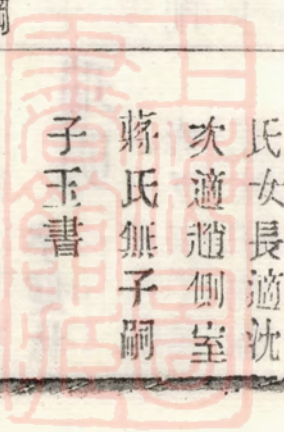 氏女長適沈
次適趙側室
蔣氏無子嗣
子玉書